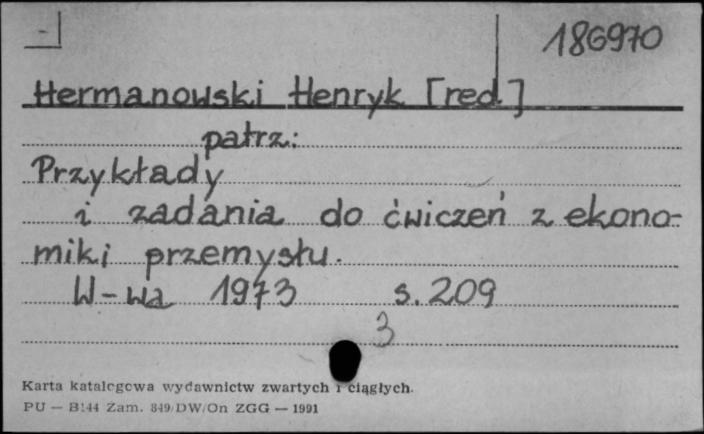 -
186970
Hermanowski Henryk [red.]
patrz:
Przykłady
i zadania do ćwiczeń z ekono-
miki przemysłu.
W-wa 1973 s. 209
3
Karta katalogowa wydawnictw zwartych i ciągłych.
PU — B144 Zam. 849/DW/On ZGG — 1991